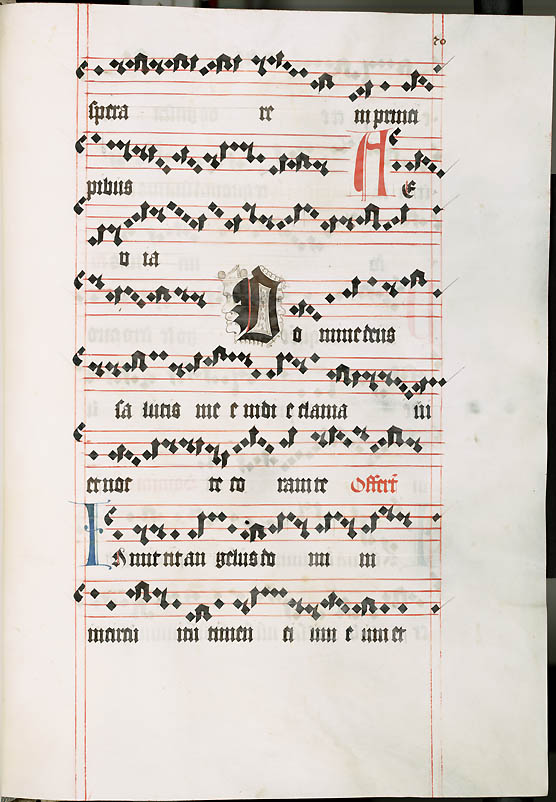 70
spera re in princi
pibus A E
v ia
D o mine deus
sa lutis me e in di e clama in
et noc te co ram te Offert
I Nmit tit an gelus do mi ni
in circui tu timen ci um e um et